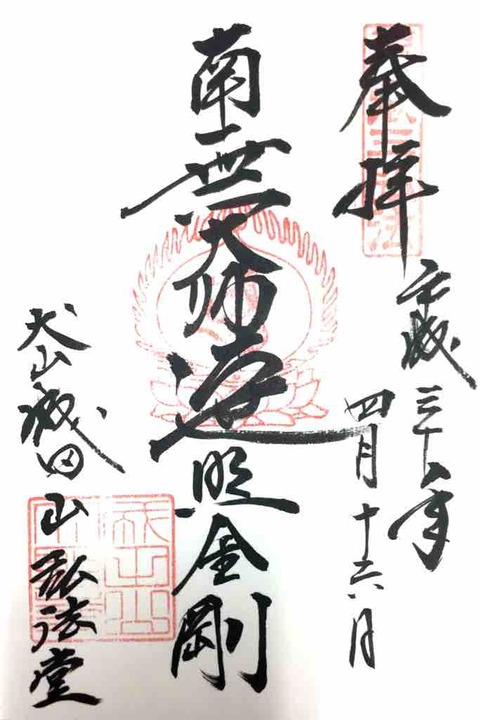 奉拝
平成三十年
四月十六日
南無大師遍照金剛
犬山成田山弘法堂